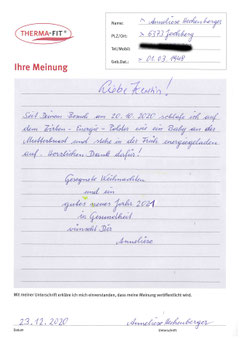 THERMA-FIT®
Name: Anneliese Hechenberger
PLZ/Ort: 6373 Jochberg
Tel./Mobil:
Geb.Dat.: 01.03.1948
Ihre Meinung
Liebe Kerstin!
Seit Deinem Besuch am 20.10.2020 schlafe ich auf
dem Zirben-Energie-Polster wie ein Baby an der
Mutterbrust und stehe in der Früh energiegeladen
auf. Herzlichen Dank dafür!
Gesegnete Weihnachten
und ein
gutes neues Jahr 2021
in Gesundheit
wünscht Dir
Anneliese
Mit meiner Unterschrift erkläre ich mich einverstanden, dass meine Meinung veröffentlicht wird.
23.12.2020 Anneliese Hechenberger
Datum Unterschrift